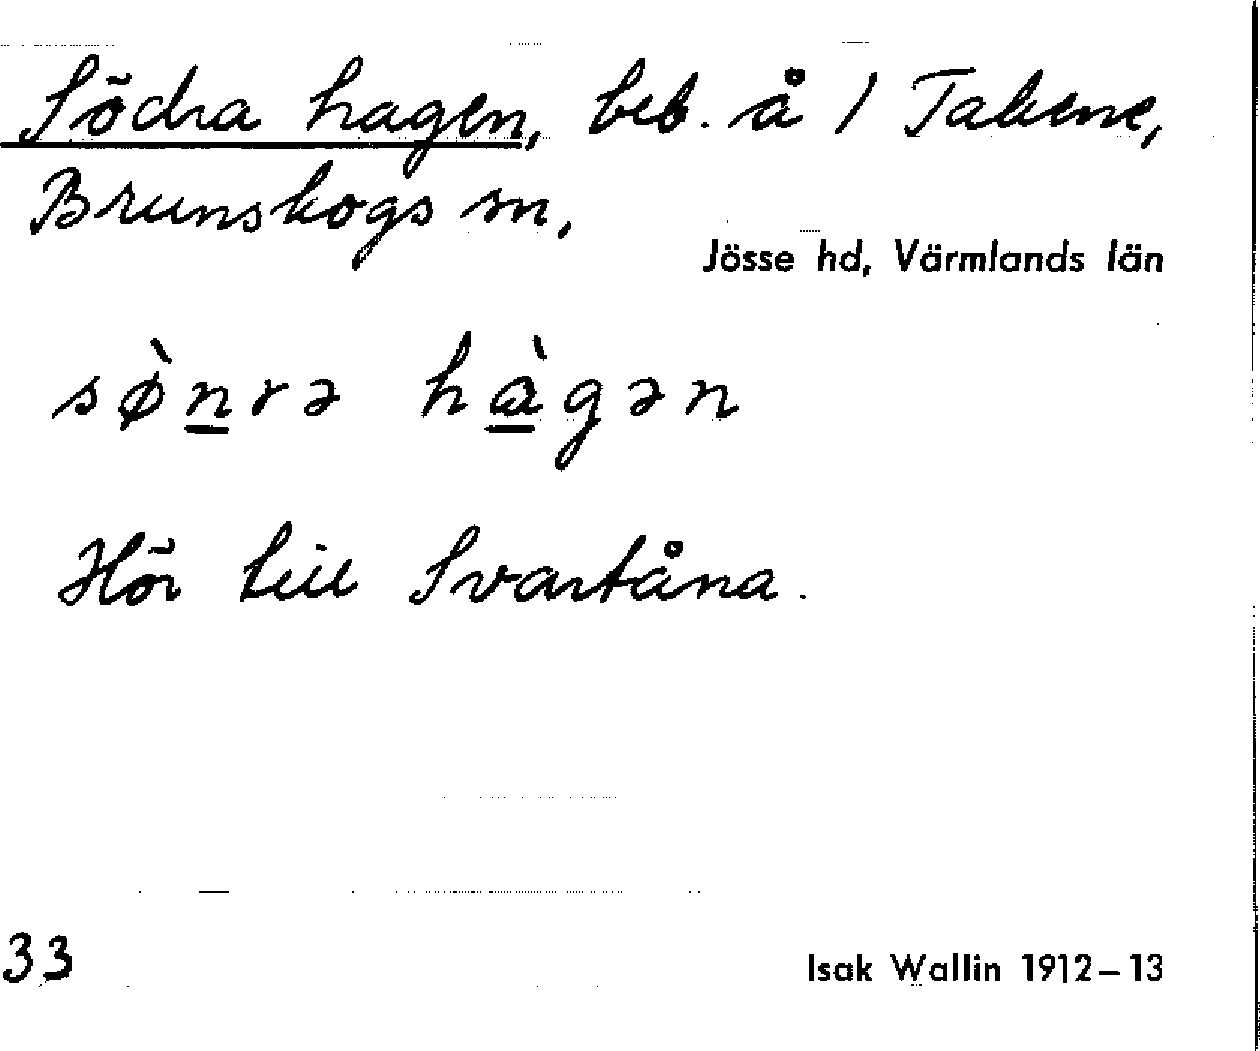 Södra hagen, beb. å 1 Tabene,
Brunskogs sn,
Jösse hd, Värmlands län
sø̀n̲rə hà̲gən
Hör till Svartåna.
33
Isak Wallin 1912–13